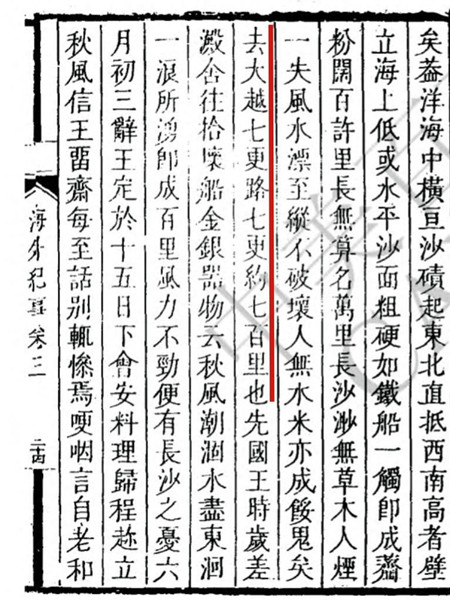 矣葢洋海中橫亘沙磧起東北直抵西南高者壁
立海上低或水平沙面粗硬如鐵船一觸即成齏
粉闊百許里長無算名萬里長沙渺無草木人煙
一失風水漂至縱不破壞人無水米亦成餒鬼矣
去大越七更路七更約七百里也先國王時歲差
澱舍往拾壞船金銀器物云秋風潮涸水盡東洄
一浪所湧即成百里風力不勁便有長沙之憂六
月初三辭王定於十五日下會安料理歸程趂立
秋風信王畱齋每至話別輒慘焉哽咽言自老和
海外紀事卷三
二十四